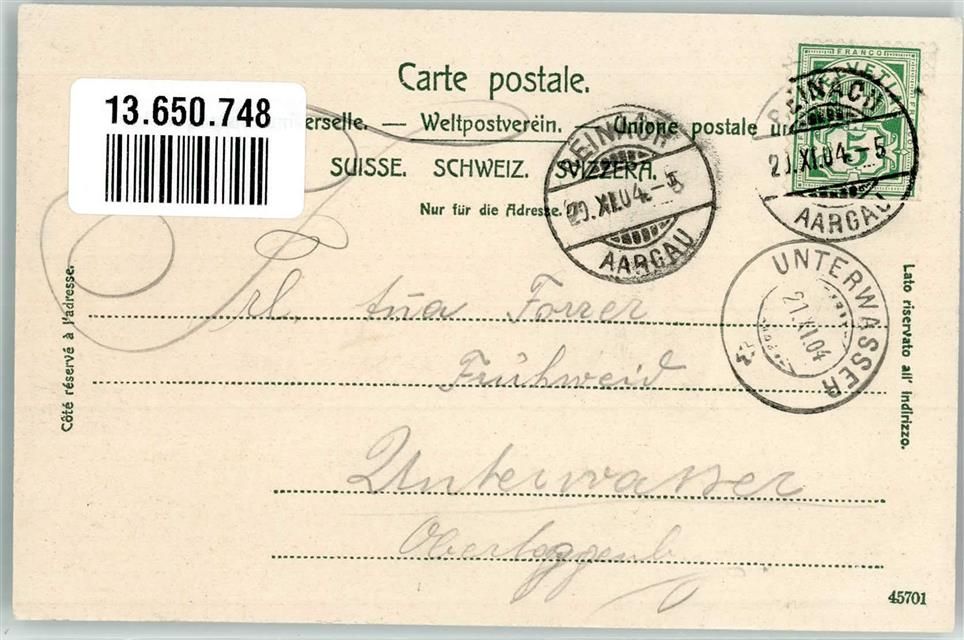 Carte postale.
13.650.748
erselle. — Weltpostverein. — Unione postale un
SUISSE. SCHWEIZ. SVIZZERA.
Nur für die Adresse.
FRANCO
HELVETIA
5
REINACH
20.XI.04-5
AARGAU
REINACH
20.XI.04-5
AARGAU
UNTERWASSER
21.XI.04
Côté réservé à l'adresse.
Lato riservato all' indirizzo.
Frl. Forrer
Frühweid
Unterwasser
Obertoggenb
45701